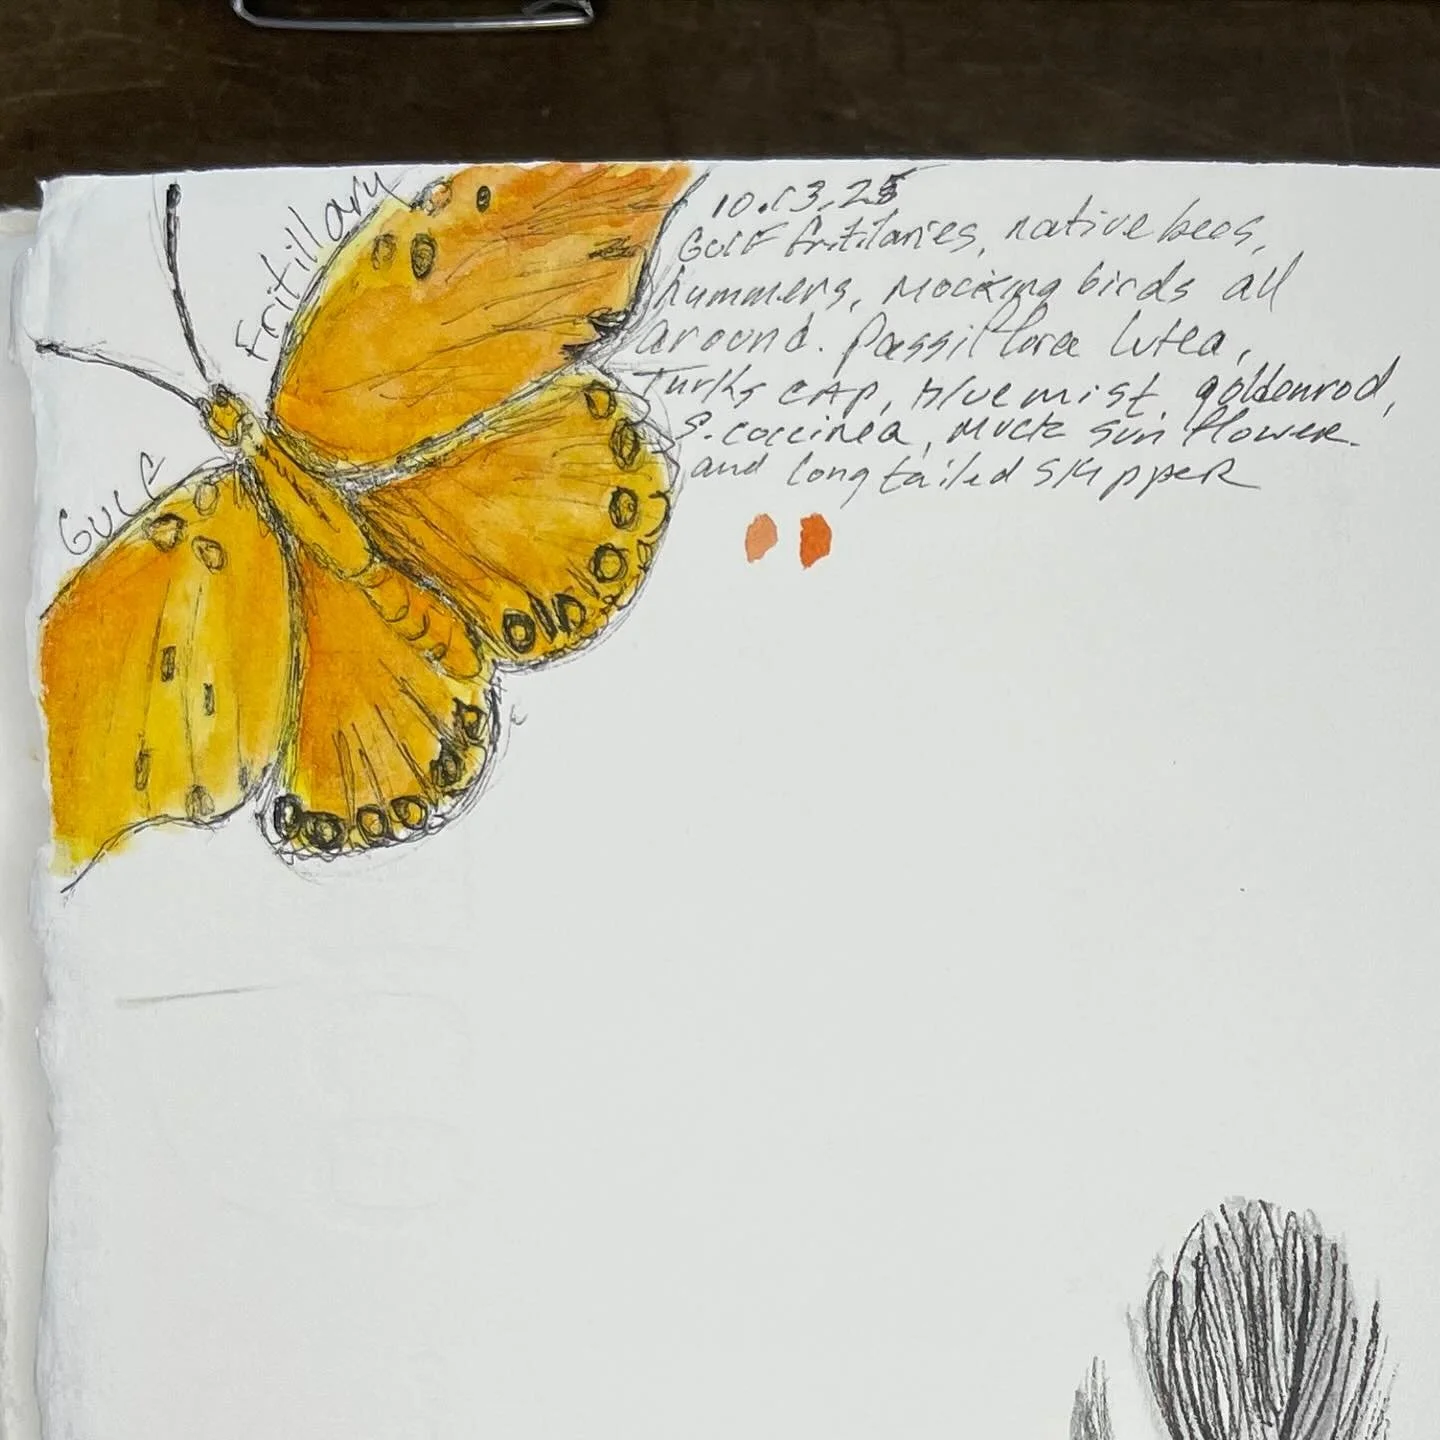 Gulf Fritillary
10.13.25
Gulf fritilaries, native bees,
hummers, mocking birds all
around. passiflora lutea,
Turks cap, blue mist, goldenrod,
S. coccinea, Muck sun flower.
and long tailed skipper